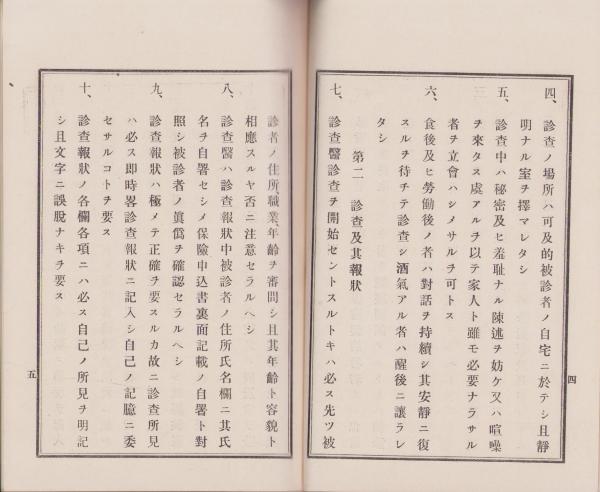 四、診査ノ場所ハ可及的被診者ノ自宅ニ於テシ且靜
明ナル室ヲ擇マレタシ
五、診査中ハ秘密及ヒ羞耻ナル陳述ヲ妨ケ又ハ喧噪
ヲ來タス虞アルヲ以テ家人ト雖モ必要ナラサル
者ヲ立會ハシメサルヲ可トス
六、食後及ヒ勞働後ノ者ハ對話ヲ持續シ其安靜ニ復
スルヲ待チテ診査シ酒氣アル者ハ醒後ニ讓ラレ
タシ
第二 診査及其報狀
七、診査醫診査ヲ開始セントスルトキハ必ス先ツ被
四
診者ノ住所、職業、年齡ヲ審問シ且其年齡ト容貌ト
相應スルヤ否ニ注意セラルヘシ
八、診査醫ハ診査報狀中被診者ノ住所氏名欄ニ其氏
名ヲ自署セシメ保險申込書裏面記載ノ自署ト對
照シ被診者ノ眞僞ヲ確認セラルヘシ
九、診査報狀ハ極メテ正確ヲ要スルカ故ニ診査所見
ハ必ス卽時畧診査報狀ニ記入シ自己ノ記臆ニ委
セサルコトヲ要ス
十、診査報狀ノ各欄各項ニハ必ス自己ノ所見ヲ明記
シ且文字ニ誤脫ナキヲ要ス
五